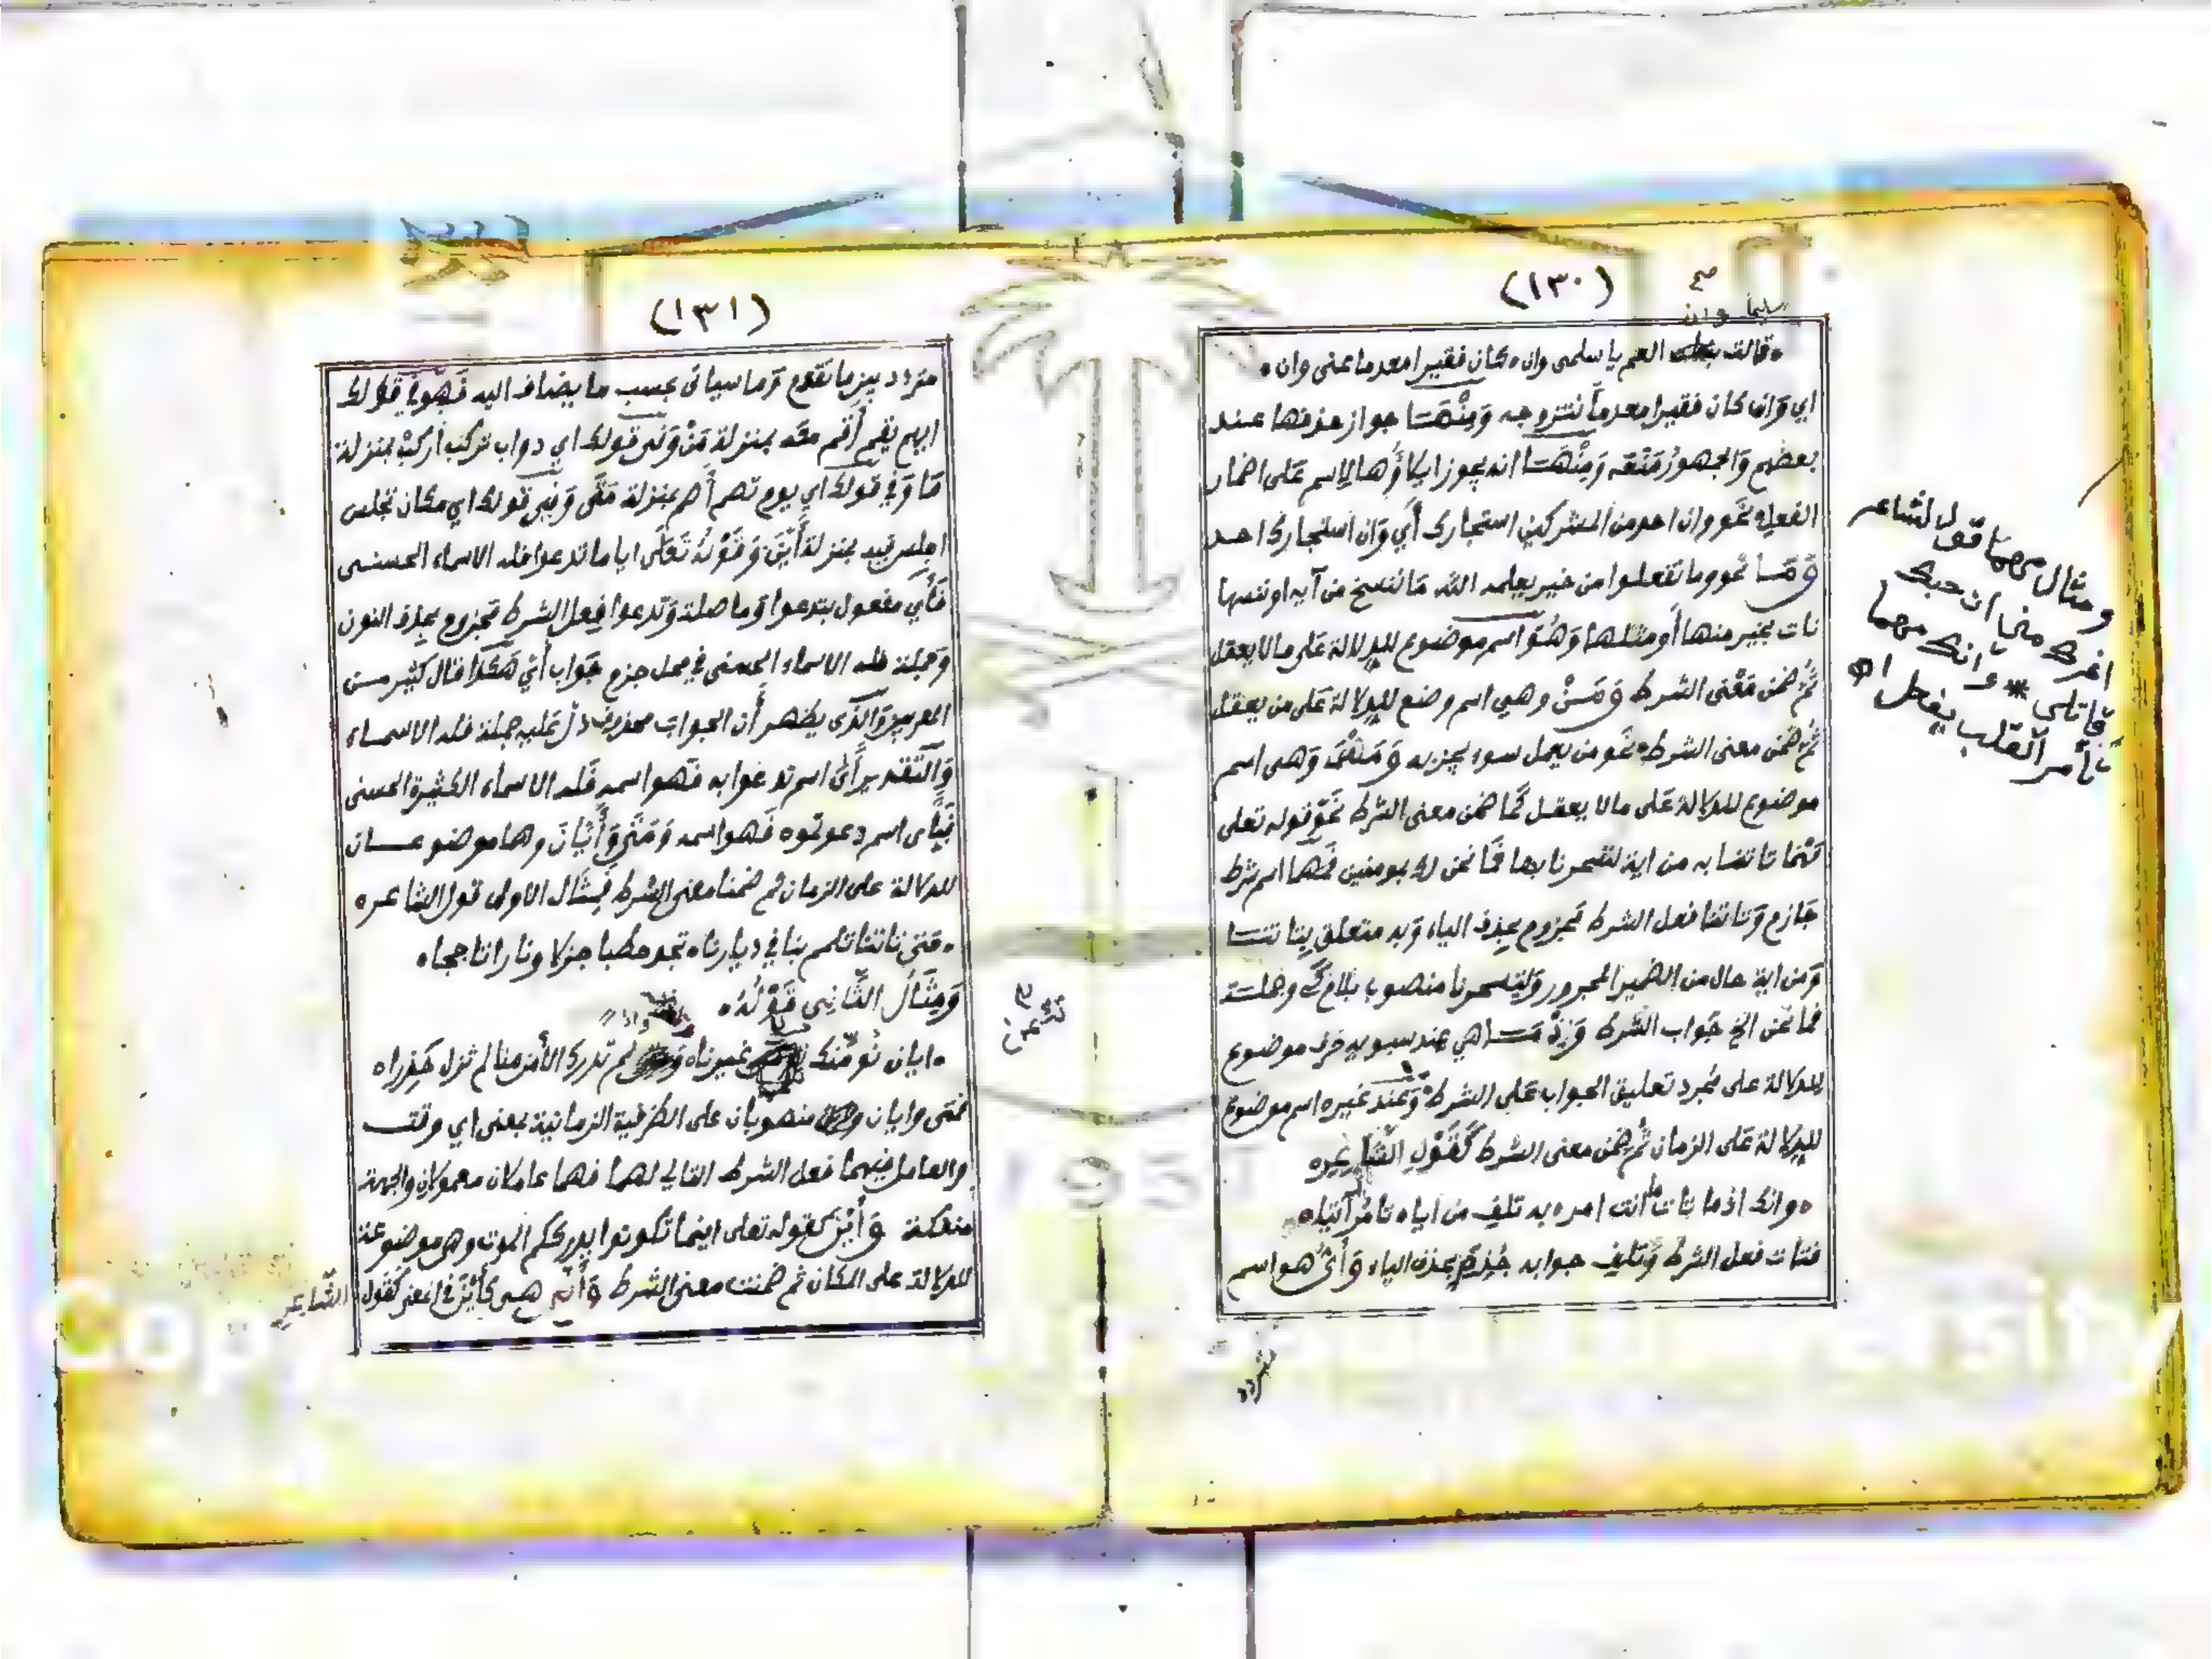 (١٣٠)
سليما وان صح
قالت بنات العم يا سلمى وان ٠ كان فقيرا معدما عنى وان ٠
اي وَان كان فقيرا معدماً نتزوجه وَمِنْهَا جواز حذفها عند
بعضهم وَالجمهورُ مَنْعَه وَمِنْهَا انه يجوز ايلاؤُها الاسم عَلى اضمار
الفعل نَحو وان احد من المشركين استجارك أَي وَان استجارك احد
وَمَا نحو وما تفعلوا من خير يعلمه الله مَا ننسخ من آيه او ننسها
نات بخير منها أَو مثلها وَهُوَ اسم موضوع للدلالة عَلى مالا يعقل
ثُمّ ضمن مَعْنى الشرط وَمَنْ وهي اسم وضع للدلالة عَلى من يعقل
ثُمّ ضمن معنى الشرط نحَو من يعمل سوء يجز به وَمَهْمَا وَهى اسم
موضوع للدلالة عَلى مالا يعقل كَما ضمن معنى الشرط نَحو قوله تعلى
مَهْمَا تاتنا به من اية لتسحرنا بها فَما نحن لك بمومنين فمهما اسم شرط
جَازم وَتاتنا فعل الشرط مَجزوم بحذف الياء وَبه متعلق بتاتنا
وَمن اية حال من الضمير المجرور وَلتسحرنا منصوب بلام كَي وجملة
فما نَحن الخ جَواب الشرط وَإِذْ مَا هي عند سبويه حرف موضوع
للدلالة على مُجرد تعليق الجواب عَلى الشرط وَعند غيره اسم موضوع
للدلالة عَلى الزمان ثُمّ ضمن معنى الشرط كَقَوْلِ الشَّاعِرِ ٠
٠ وانك اذما تات ما أنت امر ٠ به تلف من اياه تامُر آتيا ٠
فتات فعل الشرط وَتلف جوابه جُزم بحذف الياء وَأَيُّ هو اسم
متردد
ومثال مهما قول الشاعر
اغرك مني ان حبك
قاتلي * وانك مهما
تأمر القلب يفعل اه
(١٣١)
متردد بين ما تقدم وَما سياتى بحسب ما يضاف اليه فَهُوَ في قولك
ايهم يقم أَقم معَه بمنزلة مَنْ وَفى قولك اي دواب تركب أركبْ بمنزلة
مَا وَفي قولك اي يوم تصم أَصم بمنزلة مَتَى وَفي قولك اي مكان تجلس
اجلس فيه بمنزلة أَيْنَ وَقَوْلهُ تَعَلَى ايا ما تدعوا فله الاسماء الحسنى
فَأَي مفعول بتدعوا وَما صلة وَتدعوا فِعل الشرط مَجزوم بحذف النون
وَجملة فله الاسماء الحسنى في محل جزم جَواب أَي هَكَذا قال كثير من
المعربين وَالذى يظهر أَن الجواب محذوف دلّ عَليه جملة فله الاسماء
وَالتقدير أَىّ اسم تدعوا به فَهو اسمه فَله الاسماء الكثيرة الحسنى
فَبأى اسم دعوتموه فَهو اسمه وَمَتَى وَأَيَّانَ وهما موضوعان
للدلالة على الزمان ثم ضمنا معنى الشرط فمثَال الاولى قول الشاعر ٠
٠ مَتى تاتنا تلمم بنا في ديارنا ٠ تجد حطبا جزلا ونارا تاججا ٠
وَمِثَالُ الثَّانِي قَوْلُهُ ٠
٠ ايان نُؤمّنك تأمن غيرنا ٠ واذا لم تدرك الأمن منا لم تزل حَذِرا ٠
فمَتى وايان منصوبان على الظرفية الزمانية بمعنى اي وقت
والعامل فيهما فعل الشرط التالي لهما فهما عاملان معمولان والجهة
منفكة وَأَيْنَ كقوله تعلى اينما تكونوا يدرككم الموت وهي موضوعة
للدلالة على المكان ثم ضمنت معنى الشرط وَأَنَّى هي كأَيْنَ في المعنى كقول الشّاعر